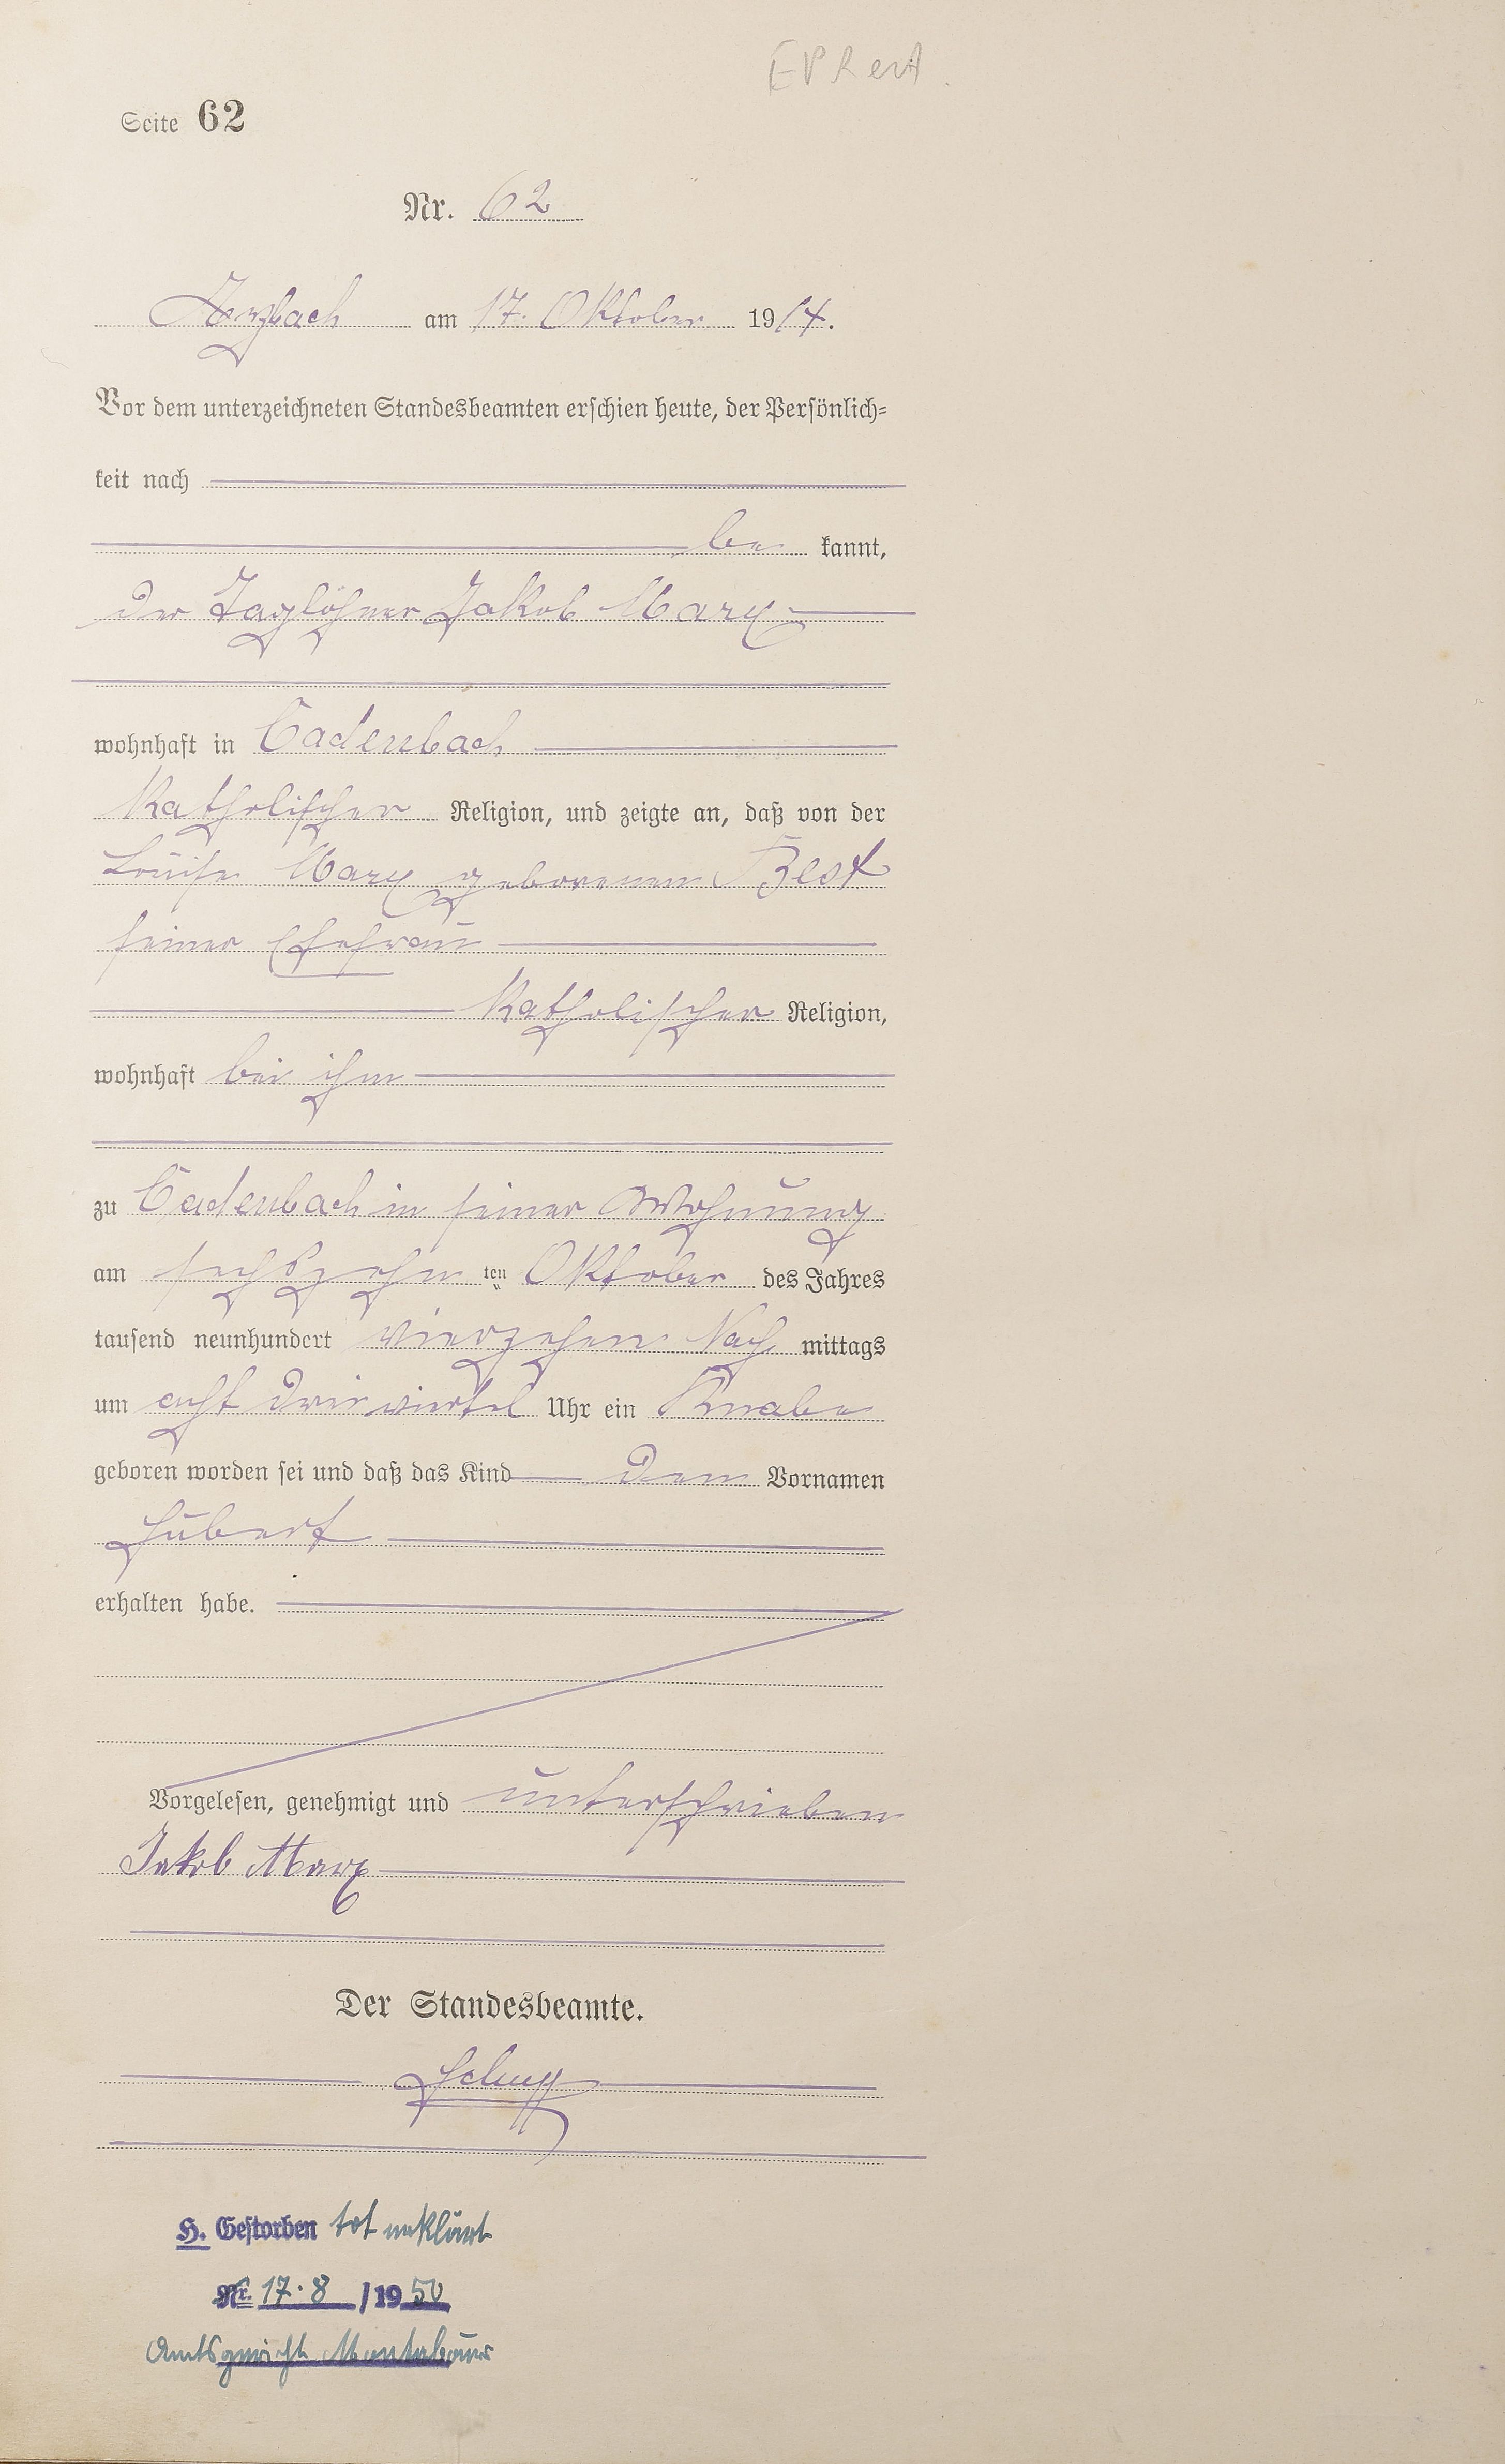 Seite 62
Nr. 62
Arzbach am 17. Oktober 1914.
Vor dem unterzeichneten Standesbeamten erschien heute, der Persönlich-
keit nach
be kannt,
der Taglöhner Jakob Marx
wohnhaft in Cadenbach
Katholischer Religion, und zeigte an, daß von der
Louise Marx geborenen Best
seiner Ehefrau
Katholischer Religion,
wohnhaft bei ihm
zu Cadenbach in seiner Wohnung
am sechszehn ten Oktober des Jahres
tausend neunhundert vierzehen Nach mittags
um acht dreiviertel Uhr ein Knabe
geboren worden sei und daß das Kind den Vornamen
Hubert
erhalten habe.
Vorgelesen, genehmigt und unterschrieben
Jakob Marx
Der Standesbeamte.
H. Gestorben tot erklärt
Nr. 17.8 /1950
Amtsgericht Montabaur